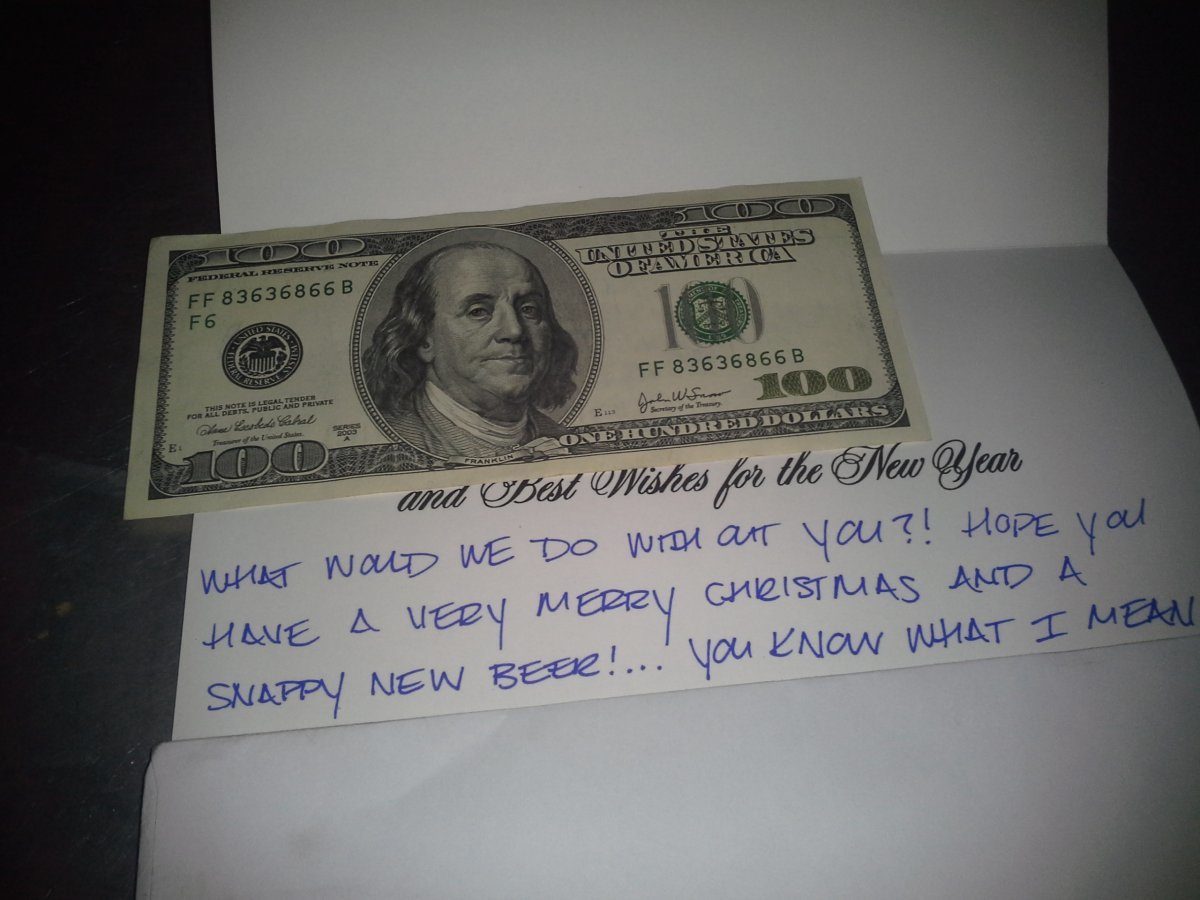 100
100
FEDERAL RESERVE NOTE
THE
UNITED STATES
OF AMERICA
FF 83636866 B
F6
100
UNITED STATES
FEDERAL RESERVE
FF 83636866 B
THIS NOTE IS LEGAL TENDER
FOR ALL DEBTS, PUBLIC AND PRIVATE
Treasurer of the United States.
SERIES
2003
A
E1
100
FRANKLIN
E 119
John W. Snow
Secretary of the Treasury.
100
ONE HUNDRED DOLLARS
and Best Wishes for the New Year
WHAT WOULD WE DO WITH OUT YOU?! HOPE YOU
HAVE A VERY MERRY CHRISTMAS AND A
SNAPPY NEW BEER!... YOU KNOW WHAT I MEAN